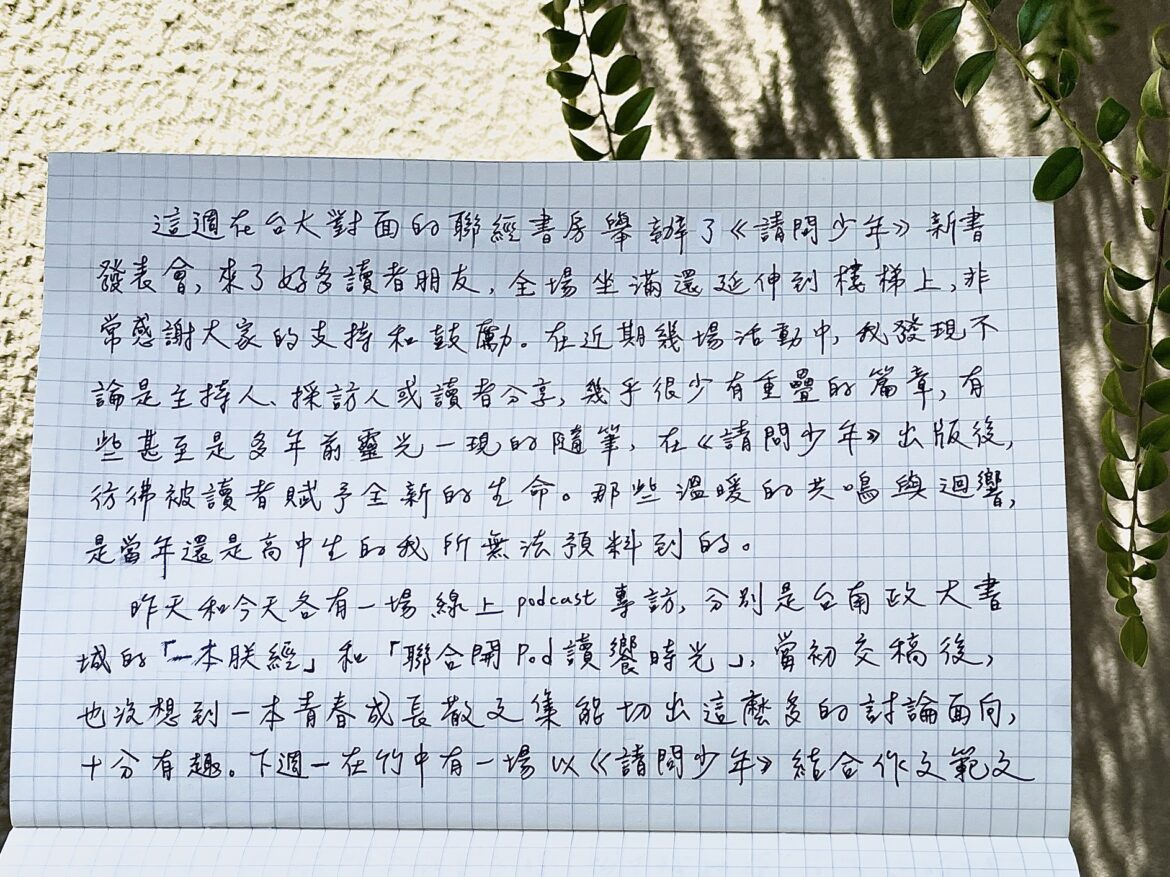 這週在台大對面的聯經書房舉辦了《請問少年》新書
發表會,來了好多讀者朋友,全場坐滿還延伸到樓梯上,非
常感謝大家的支持和鼓勵。在近期幾場活動中,我發現不
論是主持人、採訪人或讀者分享,幾乎很少有重疊的篇章,有
些甚至是多年前靈光一現的隨筆,在《請問少年》出版後,
彷彿被讀者賦予全新的生命。那些溫暖的共鳴與迴響,
是當年還是高中生的我所無法預料到的。
昨天和今天各有一場線上podcast專訪,分別是台南政大書
城的「一本朕經」和「聯合開Pod讀饗時光」,當初交稿後,
也沒想到一本青春成長散文集能切出這麼多的討論面向,
十分有趣。下週一在竹中有一場以《請問少年》結合作文範文